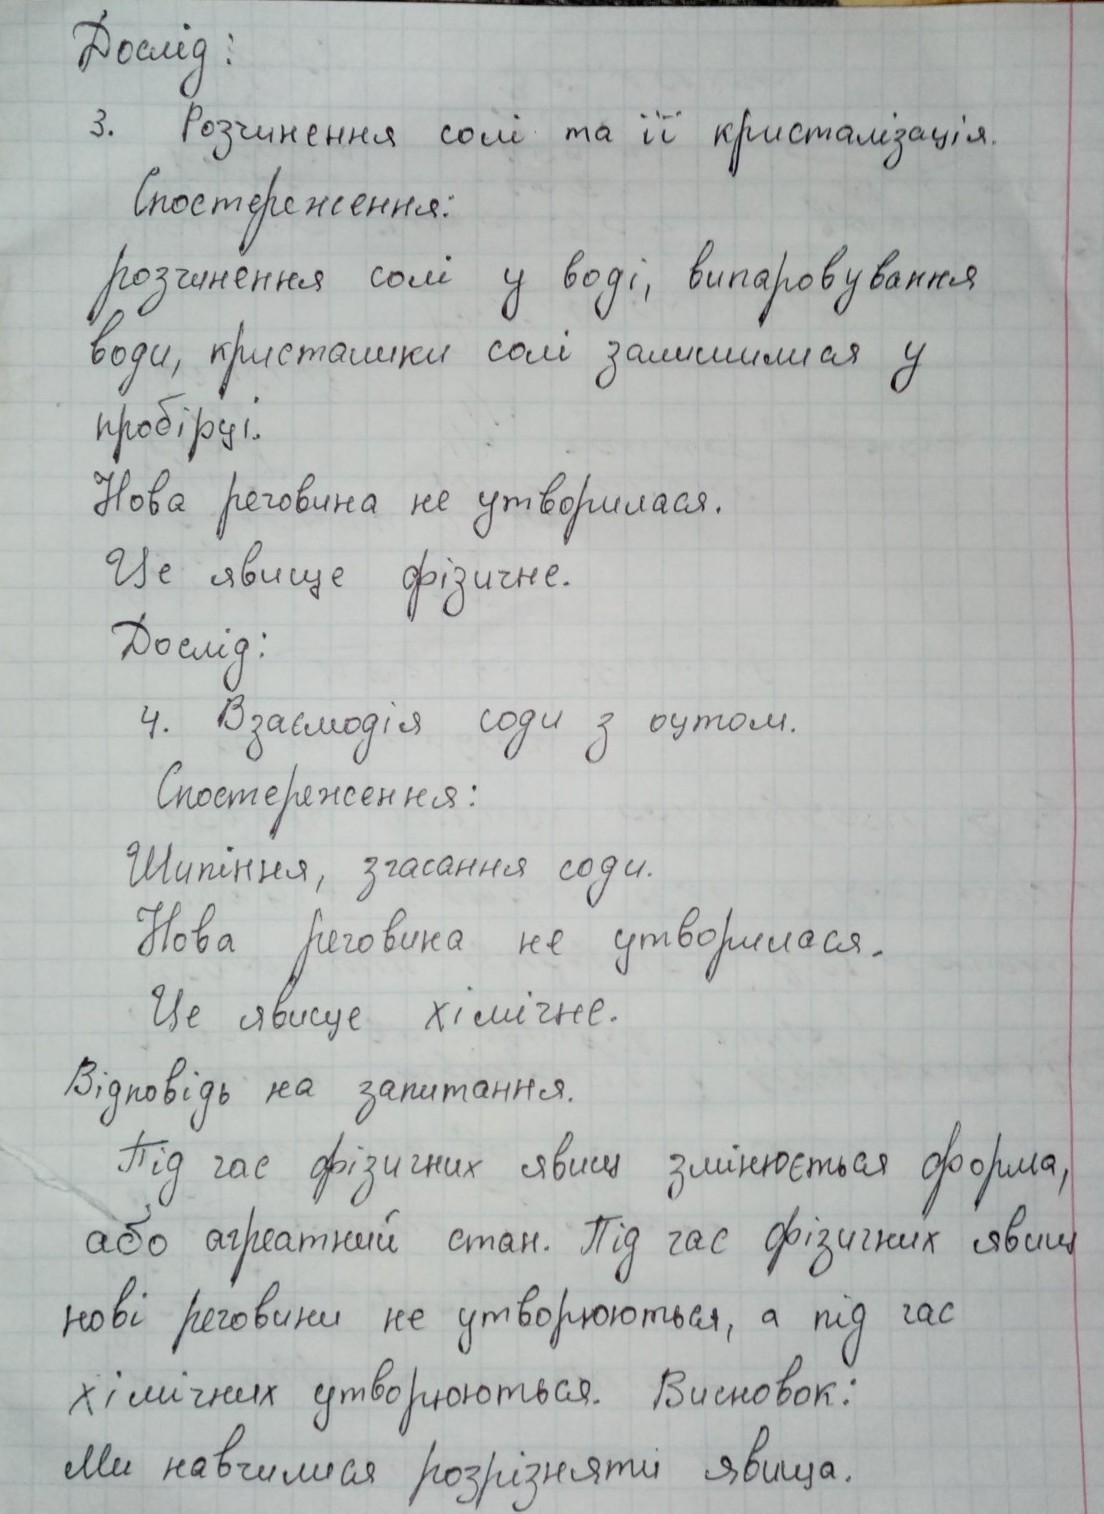 Дослід:
3. Розчинення солі та її кристалізація.
Спостереження:
розчинення солі у воді, випаровування
води, кристалики солі залишилися у
пробірці.
Нова речовина не утворилася.
Це явище фізичне.
Дослід:
4. Взаємодія соди з оцтом.
Спостереження:
Шипіння, згасання соди.
Нова речовина не утворилася.
Це явище хімічне.
Відповідь на запитання.
Під час фізичних явищ змінюється форма,
або агреатний стан. Під час фізичних явищ
нові речовини не утворюються, а під час
хімічних утворюються. Висновок:
Ми навчилися розрізняти явища.